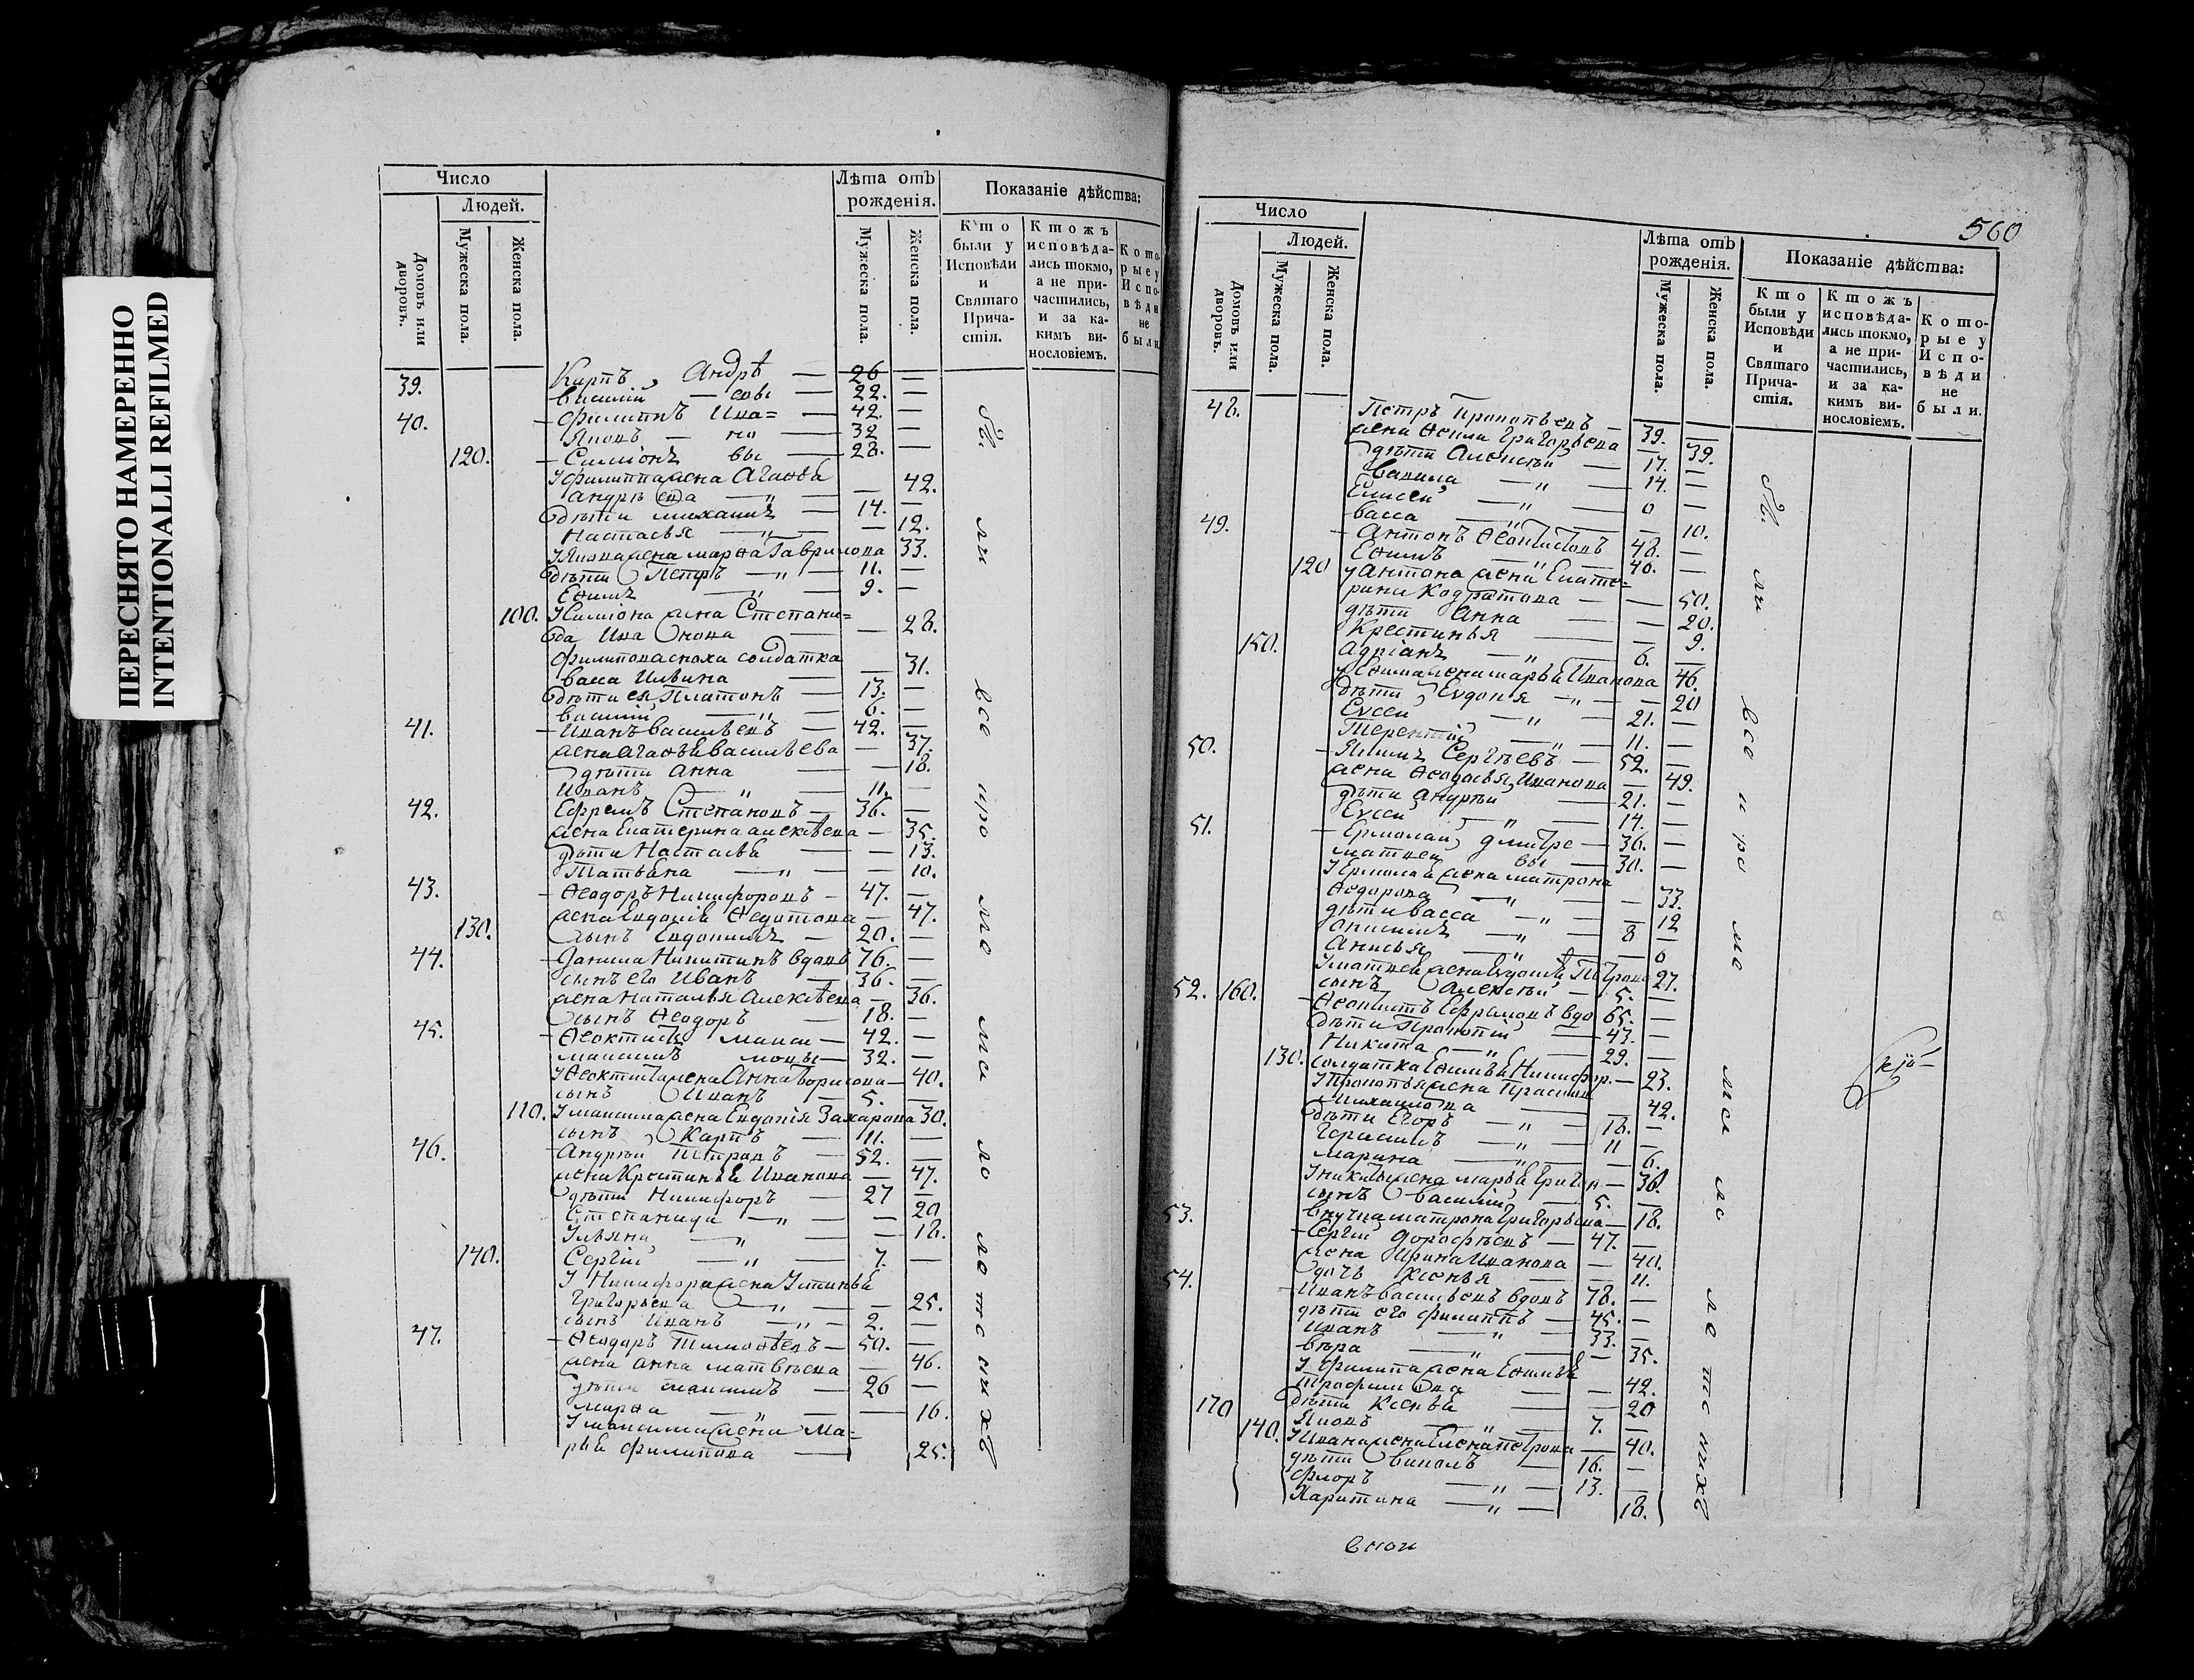 ПЕРЕСНЯТО НАМЕРЕННО
INTENTIONALLI REFILMED
Число
Людей.
Домовъ или дворовъ.
Мужеска пола.
Женска пола.
Лѣта отъ рожденія.
Мужеска пола.
Женска пола.
Показаніе дѣйства:
Кто были у Исповѣди и Святаго Причастія.
Ктожъ исповѣдались токмо, а не причастились, и за какимъ винословіемъ.
Которые у Исповѣди не были.
39. Карпъ Андрѣ — 26 —
Василий — евы — 22. —
40. Филиппъ Ива= — 42. —
Яковъ — но — 32 —
120. Симіонъ вы — 28. —
У Филиппа жена Агафья
Андрѣева — „ — — 42.
дѣти Михаилъ — 14. —
Настасья — „ — — 12.
У Якова жена Марфа Гаврилова 33.
дѣти Петръ — „ — 11. —
Ефимъ — „ — 9. —
100. У Симіона жена Степани=
да Ива нова — — 28.
Филипова сноха солдатка
Васса Ильина — — 31.
дѣти ея Платонъ — 13. —
Василий — „ — 6. —
41. Иванъ Васильевъ — 42. —
жена Агафья Васильева — 37.
дѣти Анна — — 18.
Иванъ — „ — 11. —
42. Ефремъ Степановъ — 36. —
жена Екатерина Алексѣева — 35.
дѣти Настасья — — 13.
Татьяна — „ — — 10.
43. Ѳеодоръ Никифоровъ — 47. —
жена Евдокія Ѳедотова — 47.
130. сынъ Евдокимъ — 20. —
44. Данила Никитинъ вдовъ 76. —
сынъ его Иванъ — 36. —
жена Наталья Алексѣева — 36.
сынъ Ѳеодоръ — 18. —
45. Ѳеоктистъ Макси — 42. —
Максимъ мовы — 32. —
У Ѳеоктиста жена Анна Борисова — 40.
сынъ Иванъ — 5. —
110. У Максима жена Евдокія Захарова 30.
сынъ Карпъ — 11. —
46. Андрей Петровъ — 52. —
жена Крестинья Иванова — 47.
дѣти Никифоръ — 27 —
Степанида — „ — — 20
Ульяна — „ — — 18.
140. Сергій — „ — 7. —
У Никифора жена Устинья
Григорьева — „ — — 25.
сынъ Иванъ — „ — 2. —
47. Ѳеодоръ Тимоѳѣевъ — 50. —
жена Анна Матвѣева — 46.
дѣти Максимъ — 26 —
Марфа — „ — — 16.
У Максима жена Ма=
рья Филипова — 25.
560
Число
Людей.
Домовъ или дворовъ.
Мужеска пола.
Женска пола.
Лѣта отъ рожденія.
Мужеска пола.
Женска пола.
Показаніе дѣйства:
Кто были у Исповѣди и Святаго Причастія.
Ктожъ исповѣдались токмо, а не причастились, и за какимъ винословіемъ.
Которые у Исповѣди не были.
48. Петръ Прокопьевъ — 39. —
жена Ѳекла Григорьева — 39.
дѣти Алексѣй — 17. —
Вавила — „ — 14. —
Елисей — „ — 6 —
Васса — „ — — 10.
49. Антонъ Ѳеоктистовъ 48. —
Ефимъ — „ — 40. —
120 У Антона жена Екате=
рина Кодратова — — 50.
дѣти Анна — — 20.
Крестинья — — 9.
150. Адріанъ — „ — 6. —
У Ефима жена Марья Иванова 46.
дѣти Евдокія — „ — — 20
Евсей — „ — 21. —
Терентій — „ — 11. —
50. Якимъ Сергѣевъ — 52. —
жена Ѳеодосья Иванова — 49.
дѣти Андрѣй — 21. —
Евсей — „ — 14. —
51. Ермолай Дмитре — 36. —
Матвей вы — 30. —
У Ермолая жена Матрона
Ѳедорова — „ — — 33.
дѣти Васса — „ — — 12
Анисимъ — „ — 8 —
Анисья — „ — — 6
У Матвея жена Петрова 27.
сынъ Алексѣй — 5. —
52. 160. Ѳеоктистъ Ефремовъ вдо 65. —
дѣти Прокопій — 43. —
Никита — „ — 29. —
130. солдатка Ефимья Никифор. — 23.
У Прокопья жена Прасков
Михайлова — 42.
дѣти Егоръ — „ — 18. —
Герасимъ — „ — 11 —
Марина — „ — — 6.
У Никиты жена Марья Григор — 36.
сынъ Василий — 5. —
внучка Матрона Григорьева — 18.
53. Сергій Дорофѣевъ — 47. —
жена Ирина Иванова — 40.
дочь Хионья — — 11.
54. Иванъ Васильевъ вдовъ 78. —
дѣти его Филиппъ — 45. —
Иванъ — „ — 33. —
Вѣра — „ — — 35.
У Филипа жена Ефимья
Трофимова — — 42.
дѣти Ксенья — — 20
170 Яковъ — „ — 7. —
140. У Ивана жена Елена Петрова — 40.
дѣти Виколъ — 16. —
Флоръ — „ — 13. —
Харитина — „ — 18.